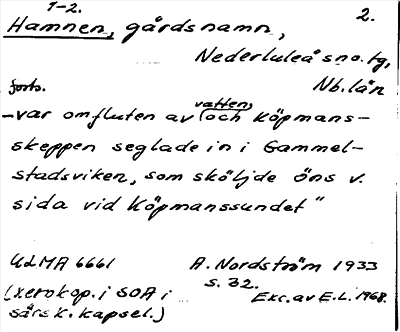 1-2.
Hamnen, gårdsnamn, 2.
Nederluleå sn o. tg,
Nb. län
forts.
-var omfluten av vatten, och köpmans-
skeppen seglade in i Gammel-
stadsviken, som sköljde öns v.
sida vid Köpmanssundet"
ULMA 6661 A. Nordström 1933
s. 32.
(xerokop. i SOA i Exc. av E.L. 1968.
särsk. kapsel.)